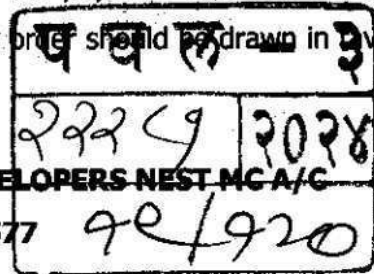 order should be drawn in
प व ल - ३
२०२४
ELOPERS NEST MC A/C
77
१९/१२०